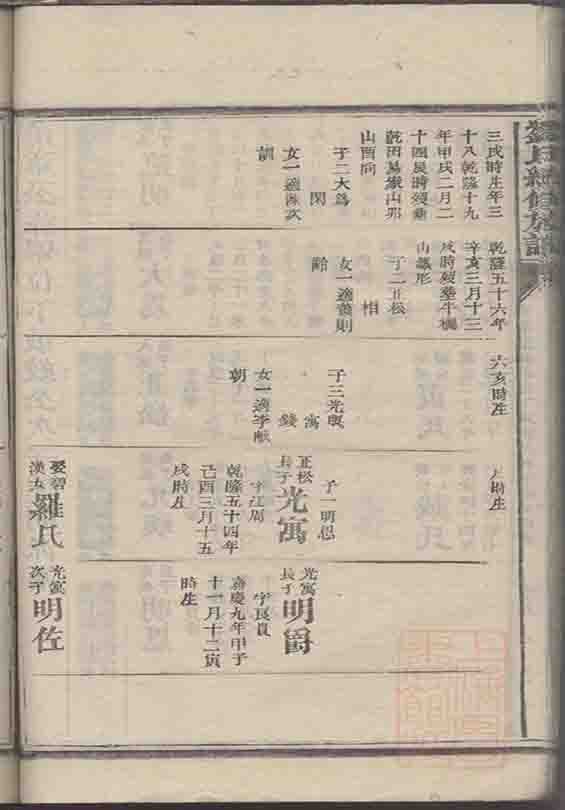 三戌時生年三
十八乾隆十九
年甲戌二月二
十四辰時歿葬
乾田易嶽山卯
山酉向
子二大爲
閑
女一適
訓
乾隆五十六年
辛亥三月十三
戌時歿葬牛欄
山獅形
子二正松
相
女一適黃則
齡
六亥時生
子三光輿
寓
錢
女一適李猷
朝
時生
子一明恩
正松
長子
光寓
字江周
乾隆五十四年
己酉三月十五
戌時生
娶碧
漢女
羅氏
光寓
長子
明爵
字長貴
嘉慶九年甲子
十一月十二寅
時生
光寓
次子
明佐